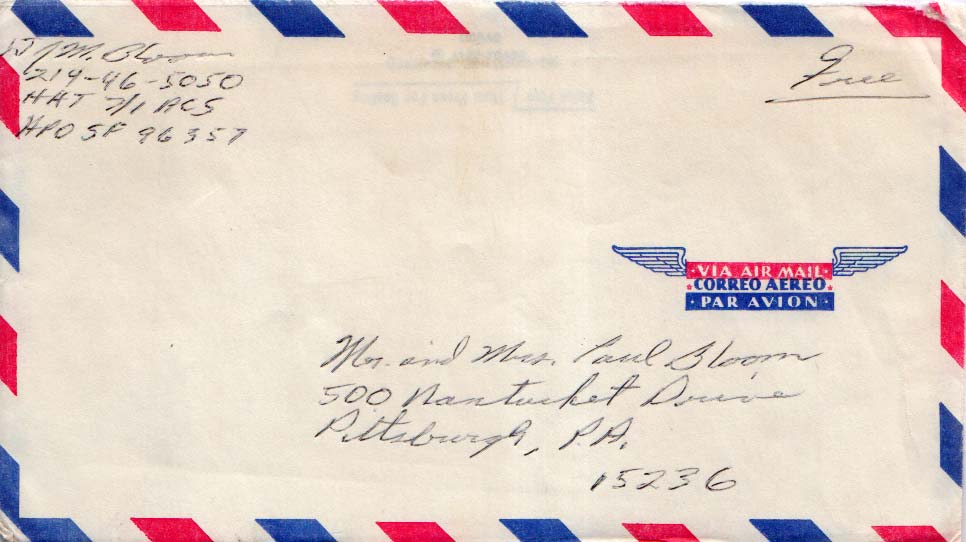 J M. Bloom
219-46-5050
HHT 7/1 ACS
APO SF 96357
Free
VIA AIR MAIL
CORREO AEREO
PAR AVION
Mr. and Mrs. Paul Bloom
500 Nantucket Drive
Pittsburgh, P.A.
15236